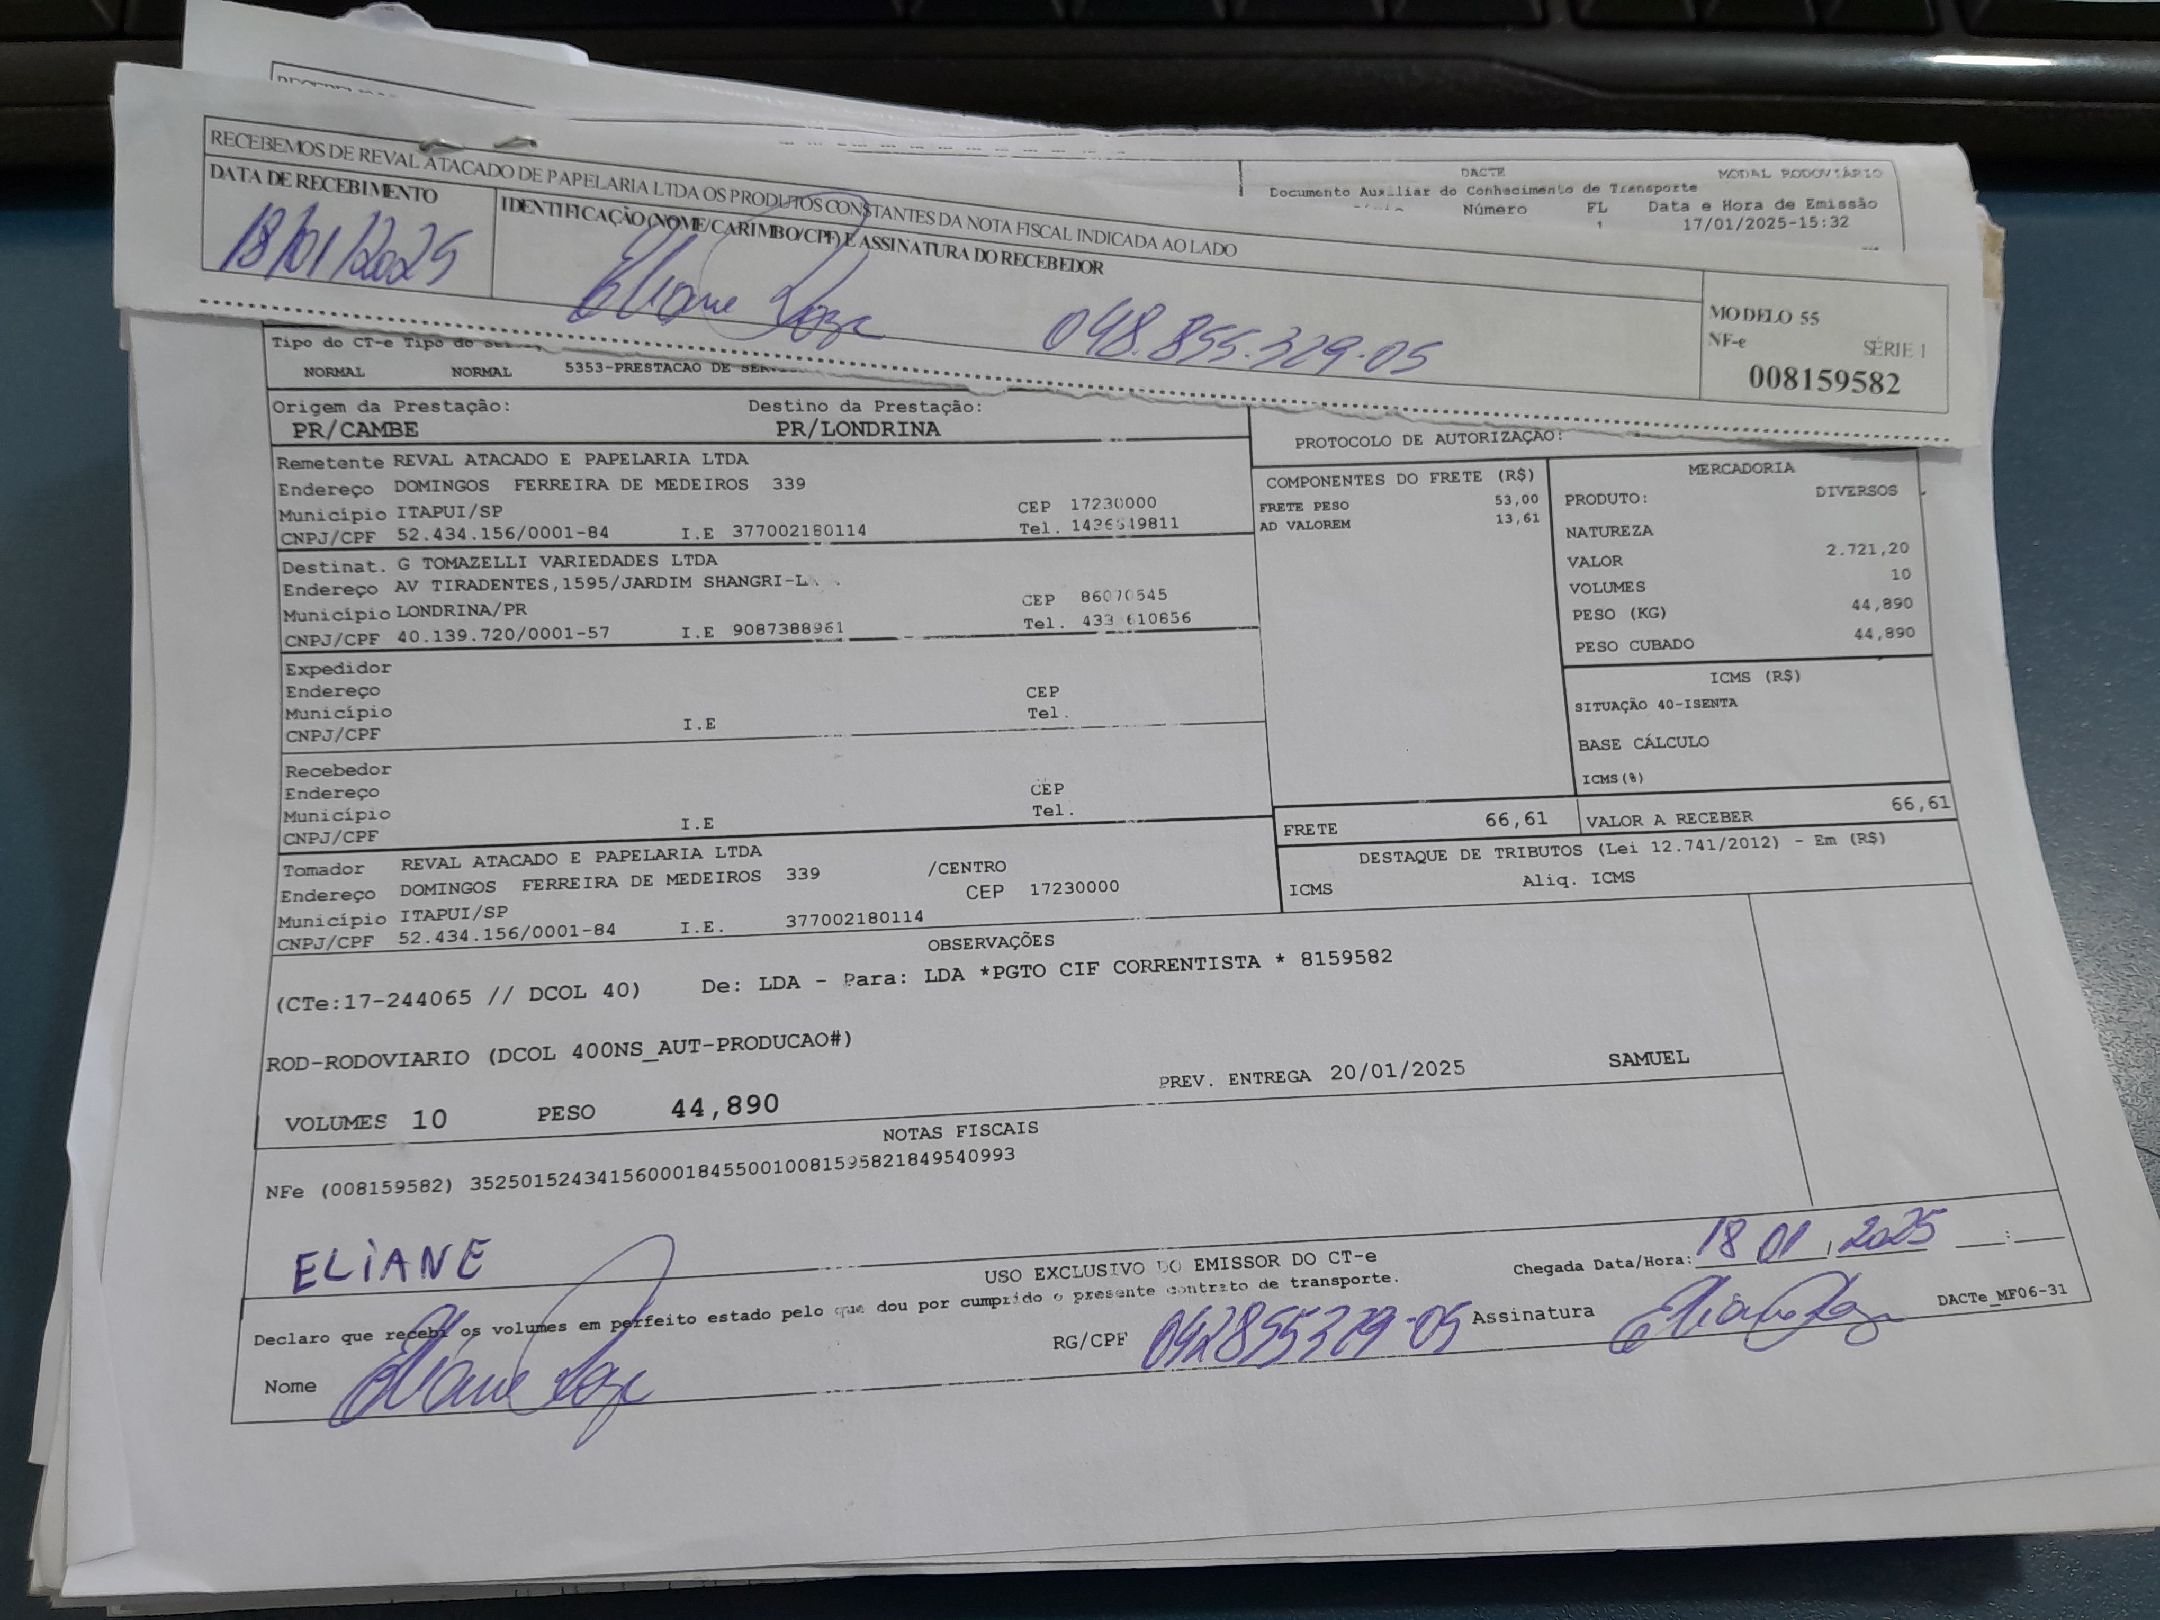 RECEBEMOS DE REVAL ATACADO DE PAPELARIA LTDA OS PRODUTOS CONSTANTES DA NOTA FISCAL INDICADA AO LADO
DATA DE RECEBIMENTO
18/01/2025
IDENTIFICAÇÃO (NOME/CARIMBO/CPF) E ASSINATURA DO RECEBEDOR
Eliane 048.855.329-05
MODELO 55
NF-e SÉRIE 1
008159582
DACTE MODAL RODOVIÁRIO
Documento Auxiliar do Conhecimento de Transporte
Número FL Data e Hora de Emissão
1 17/01/2025-15:32
Tipo do CT-e Tipo do
NORMAL NORMAL 5353-PRESTACAO DE
Origem da Prestação: Destino da Prestação:
PR/CAMBE PR/LONDRINA
PROTOCOLO DE AUTORIZAÇÃO:
Remetente REVAL ATACADO E PAPELARIA LTDA
Endereço DOMINGOS FERREIRA DE MEDEIROS 339
Município ITAPUI/SP CEP 17230000
CNPJ/CPF 52.434.156/0001-84 I.E 377002180114 Tel.
Destinat. G TOMAZELLI VARIEDADES LTDA
Endereço AV TIRADENTES,1595/JARDIM
Município LONDRINA/PR CEP 86070545
CNPJ/CPF 40.139.720/0001-57 I.E 9087388961 Tel.
Expedidor
Endereço CEP
Município Tel.
CNPJ/CPF I.E
Recebedor
Endereço CEP
Município Tel.
CNPJ/CPF I.E
Tomador REVAL ATACADO E PAPELARIA LTDA
Endereço DOMINGOS FERREIRA DE MEDEIROS 339 /CENTRO
Município ITAPUI/SP CEP 17230000
CNPJ/CPF 52.434.156/0001-84 I.E. 377002180114
COMPONENTES DO FRETE (R$)
FRETE PESO 53,00
AD VALOREM 13,61
MERCADORIA
PRODUTO: DIVERSOS
NATUREZA
VALOR 2.721,20
VOLUMES 10
PESO (KG) 44,890
PESO CUBADO 44,890
ICMS (R$)
SITUAÇÃO 40-ISENTA
BASE CÁLCULO
ICMS(%)
FRETE 66,61 VALOR A RECEBER 66,61
DESTAQUE DE TRIBUTOS (Lei 12.741/2012) - Em (R$)
ICMS Aliq. ICMS
OBSERVAÇÕES
(CTe:17-244065 // DCOL 40) De: LDA - Para: LDA *PGTO CIF CORRENTISTA * 8159582
ROD-RODOVIARIO (DCOL 400NS_AUT-PRODUCAO#)
PREV. ENTREGA 20/01/2025 SAMUEL
VOLUMES 10 PESO 44,890
NOTAS FISCAIS
NFe (008159582) 35250152434156000184550010081595821849540993
ELiANE
USO EXCLUSIVO DO EMISSOR DO CT-e
Chegada Data/Hora: 18 01 / 2025 :
Declaro que recebi os volumes em perfeito estado pelo que dou por cumprido o presente contrato de transporte.
Nome Eliane RG/CPF Assinatura Eliane DACTe_MF06-31